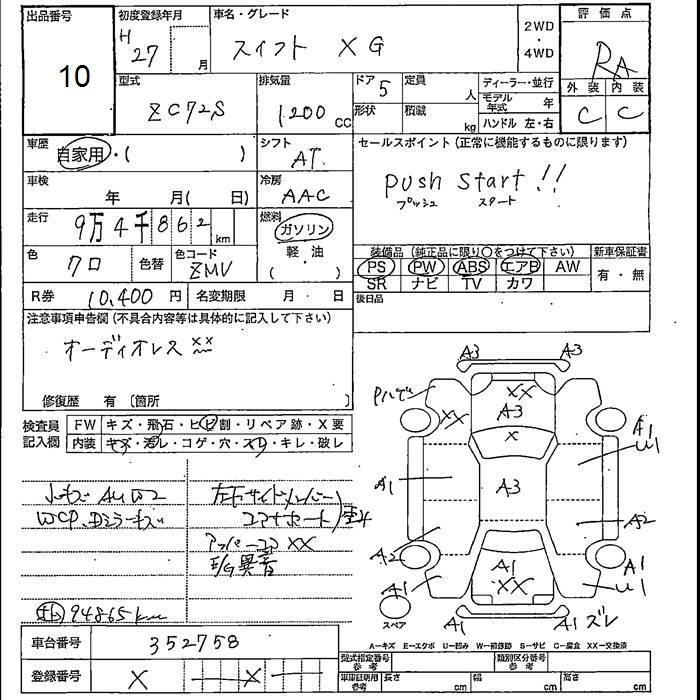 出品番号 10
初度登録年月 H 27 月
車名・グレード スイフト XG
2WD・4WD
評価点 RA
外装 C 内装 C
型式 ZC72S
排気量 1200 CC
ドア 5
形状
定員 人
積載 kg
ディーラー・並行
モデル年式 年
ハンドル 左・右
車歴 自家用・( )
シフト AT
セールスポイント(正常に機能するものに限ります)
Push Start!!
プッシュ スタート
車検 年 月( 日)
冷房 AAC
走行 9万4千862 km
燃料 ガソリン
軽・油
( )
色 クロ
色替
色コード ZMV
装備品(純正品に限り○をつけて下さい)
新車保証書
PS PW ABS エアB AW
有・無
SR ナビ TV カワ
R券 10,400 円
名変期限 月 日
後日品
注意事項申告欄(不具合内容等は具体的に記入して下さい)
オーディオレス ××
修復歴 有〔箇所 〕
検査員記入欄
FW キズ・飛石・ヒビ割・リペア跡・X要
内装 キズ・汚レ・コゲ・穴・スレ・キレ・破レ
小キズ AU W2
左右サイドメンバー
コアサポート
アッパーコア XX
E/G異音
94865km
A3 A3
XX
A3
XX
X
A1
U1
A1
A3
A2
A2
A1
XX
A1
A1
U1
A1
A1ズレ
スペア
A−キズ E−エクボ U−凹み W−補修跡 S−サビ C−腐食 XX−交換済
車台番号 352758
登録番号 X X
型式指定番号 参考
類別区分番号 参考
車庫証明用 参考
長さ cm
幅 cm
高さ cm